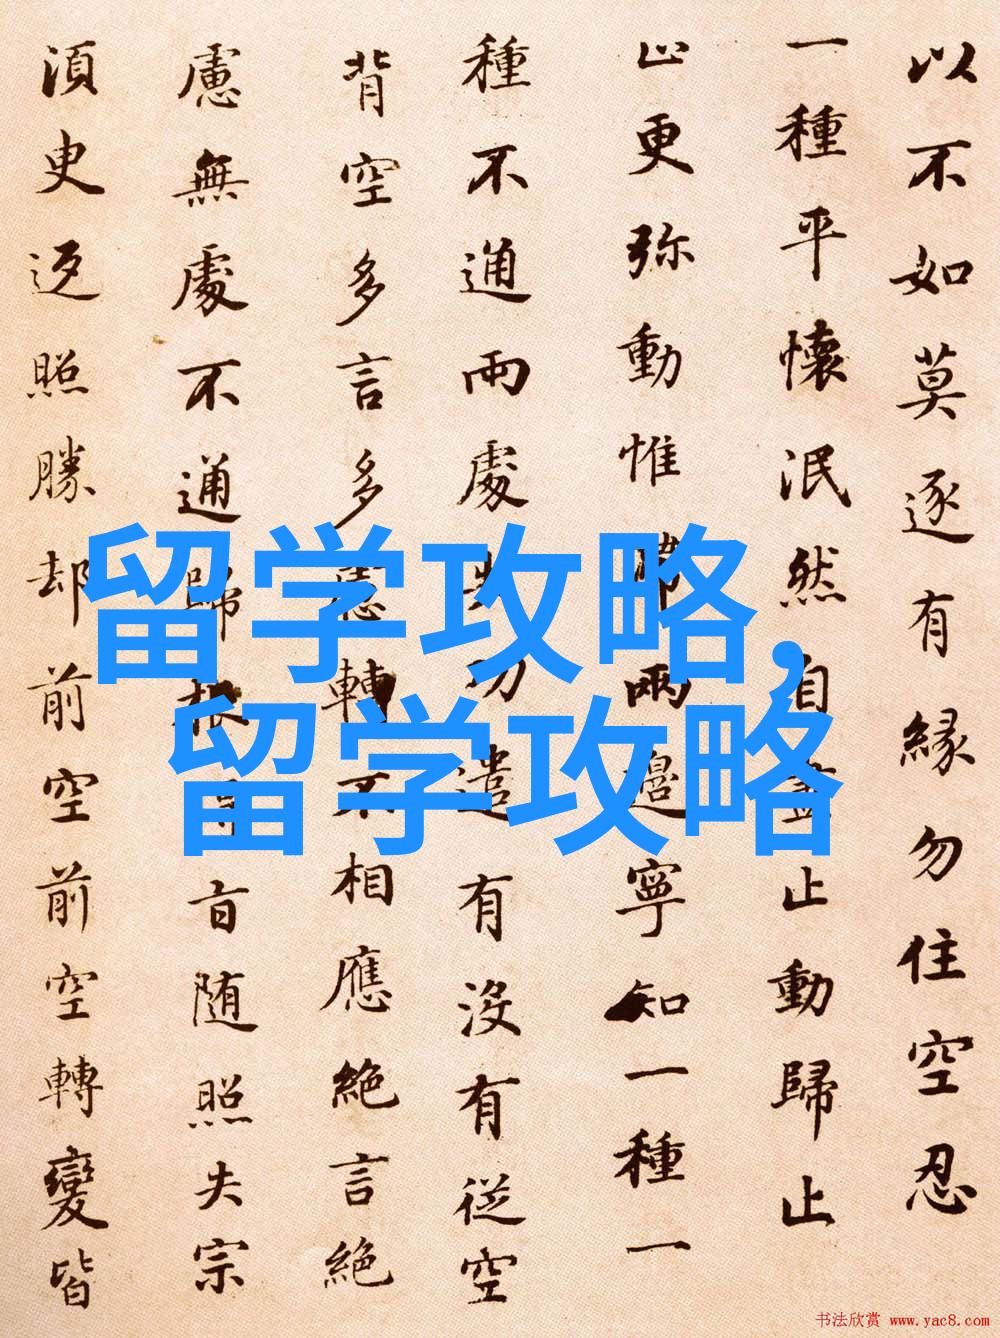 以不如莫逐有緣勿住空忍
一種平懷泯然自盡止動歸止
止更弥動惟滯兩邊寧知一種一
種不通兩處失功遣有沒有從空
背空多言多慮轉不相應絶言絶
慮無處不通歸根旨随照失宗
湏臾返照勝却前空前空轉變皆
留学攻略,
留学攻略
书法欣赏 www.yac8.com